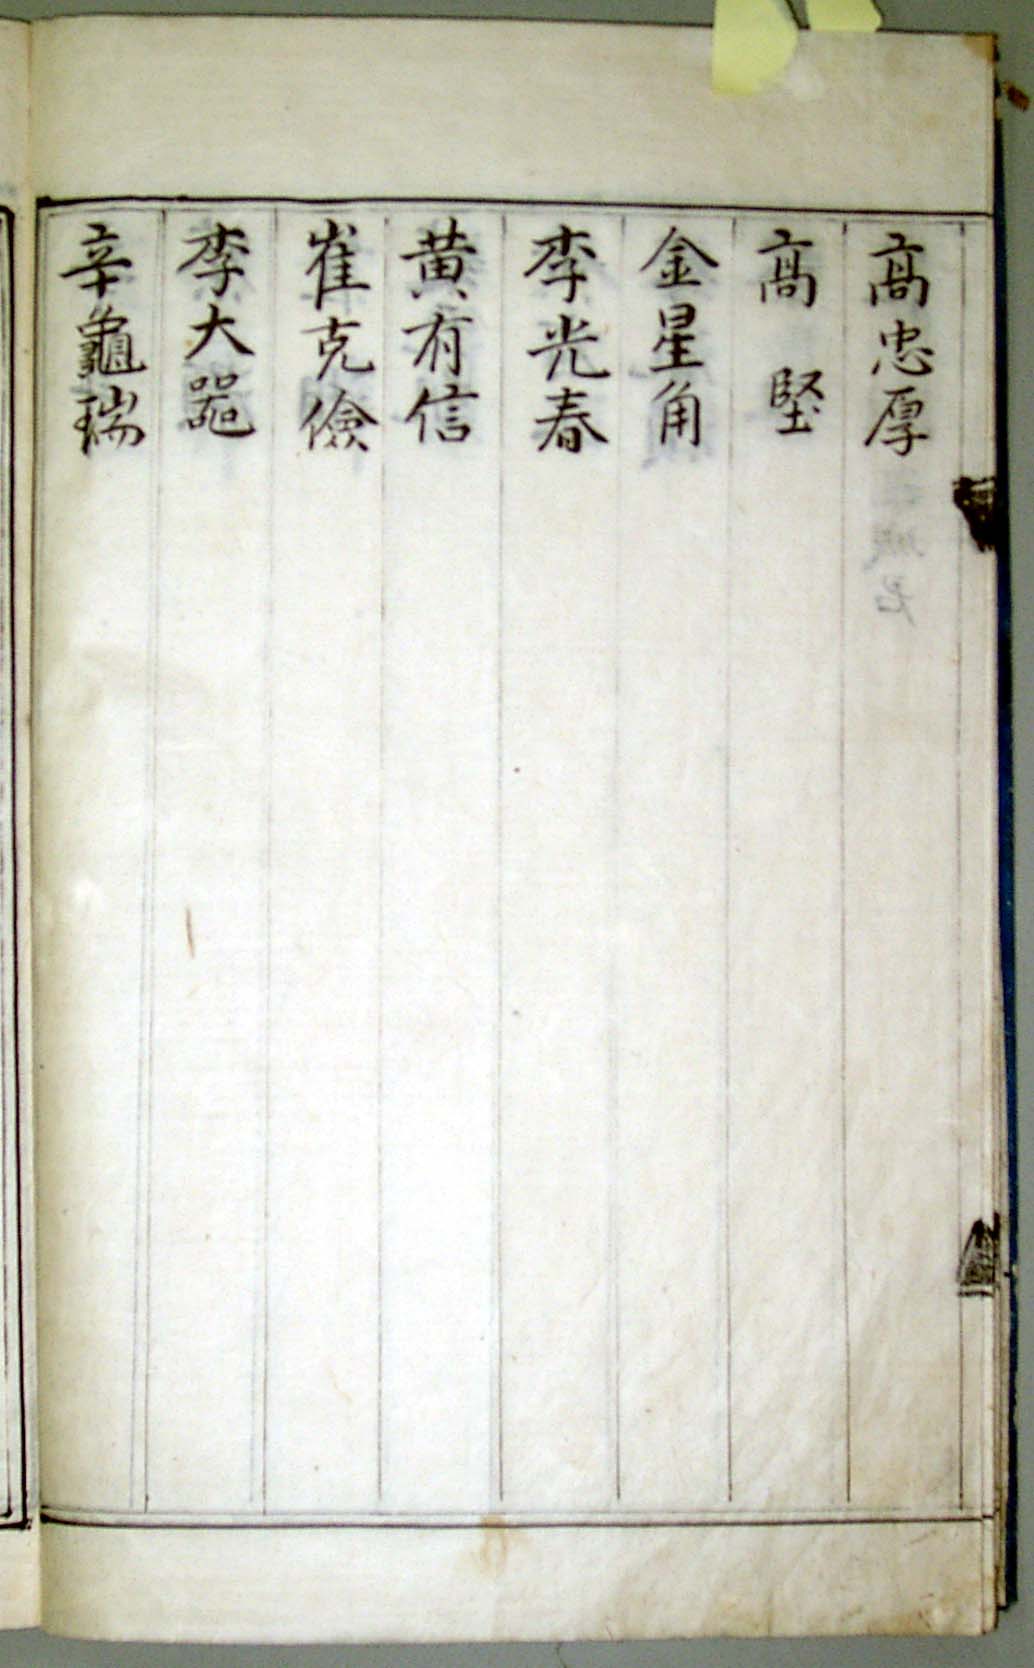 髙忠厚
髙 堅
金星角
李光春
黄有信
崔克儉
李大噐
辛龜瑞